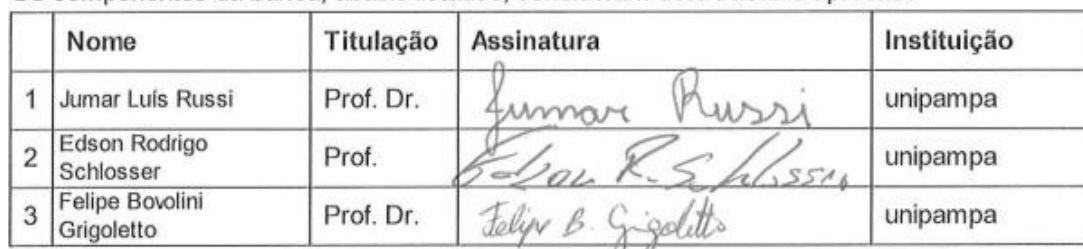 Nome Titulação Assinatura Instituição
1 Jumar Luís Russi Prof. Dr. Jumar Russi unipampa
2 Edson Rodrigo Schlosser Prof. Edson R. Schlosser unipampa
3 Felipe Bovolini Grigoletto Prof. Dr. Felipe B. Grigoletto unipampa